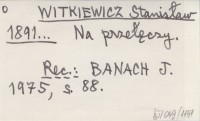 WITKIEWICZ Stanisław
1891... Na przełęczy.
Rec.: BANACH J.
1975, s. 88.